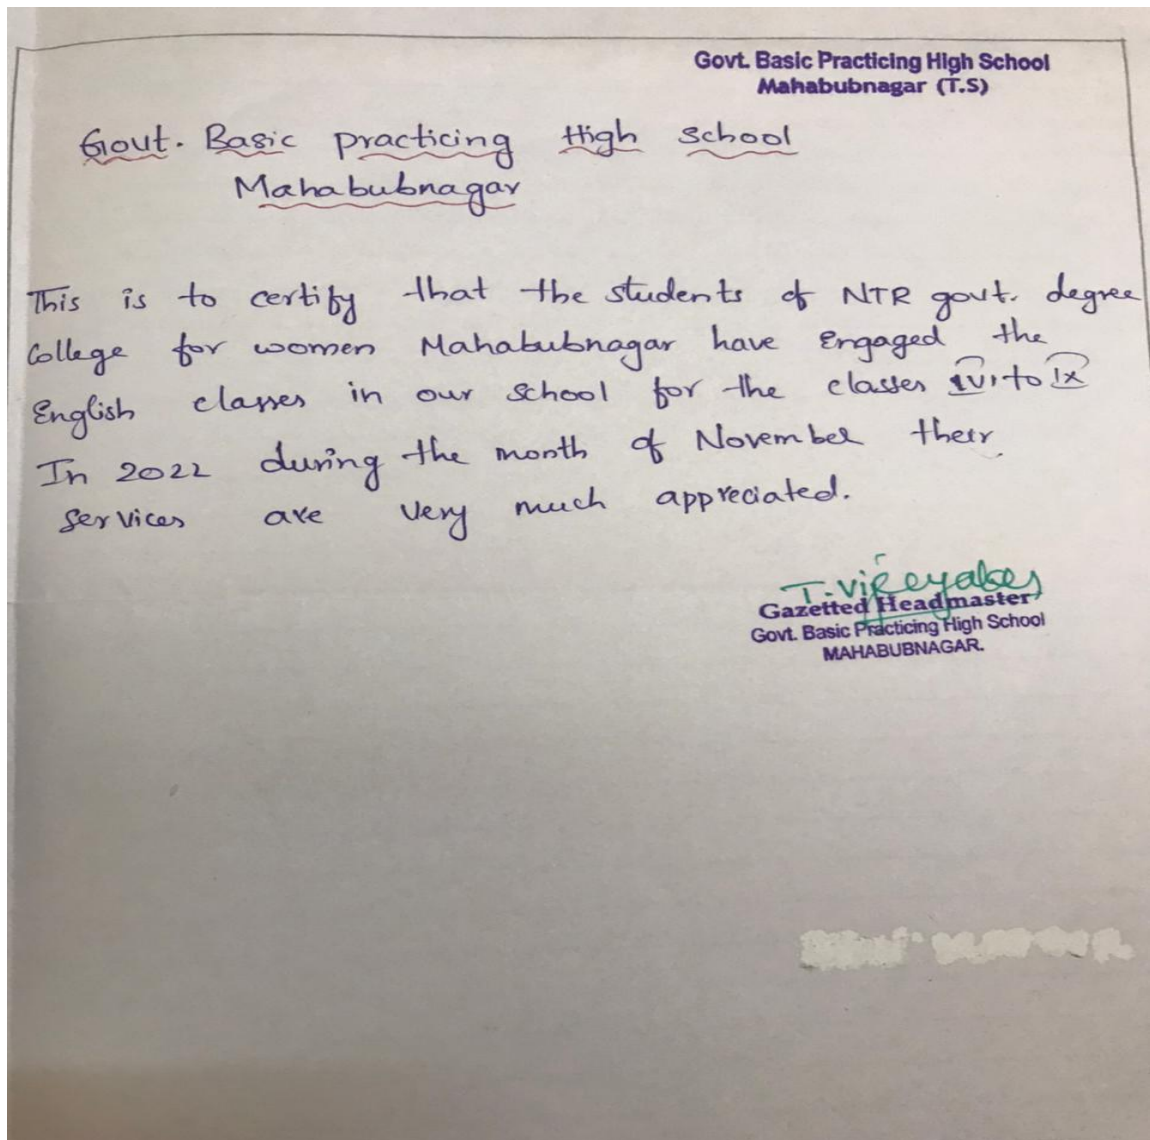 Govt. Basic Practicing High School
Mahabubnagar (T.S)
Govt. Basic practicing High school
Mahabubnagar
This is to certify that the students of NTR govt. degree
College for women Mahabubnagar have Engaged the
English classes in our school for the classes VI to IX
In 2022 during the month of November their
services are very much appreciated.
Gazetted Headmaster
Govt. Basic Practicing High School
MAHABUBNAGAR.